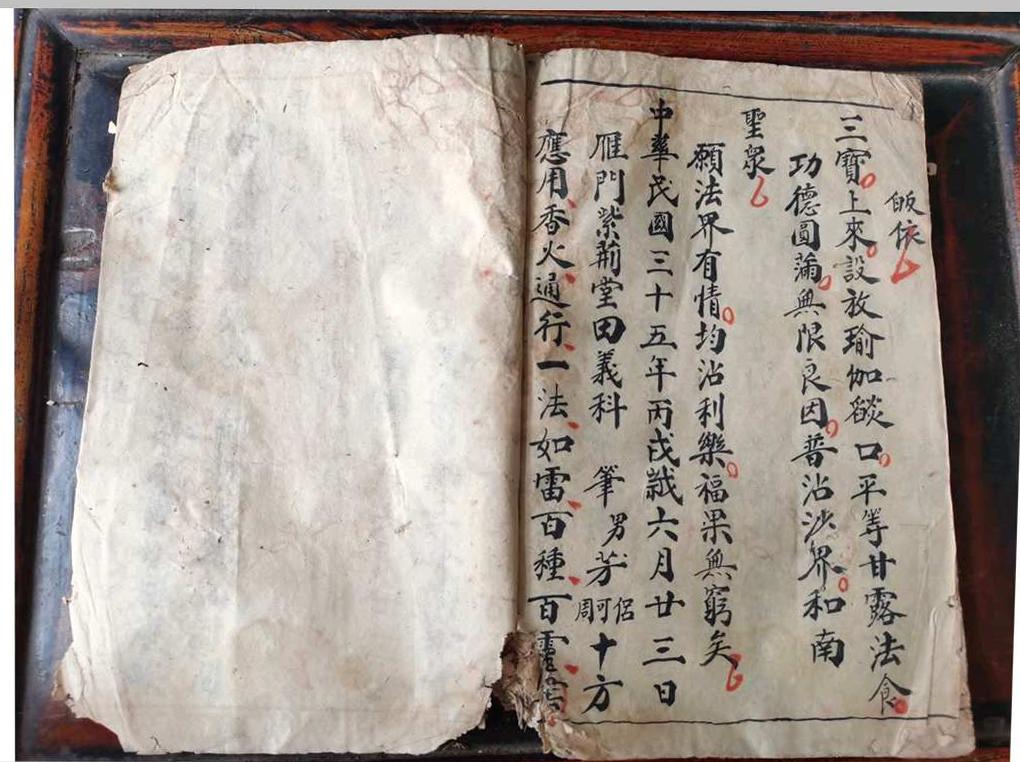 皈依
三寶上來設放瑜伽燄口平等甘露法食
功德圓滿無限良因普沾沙界和南
聖衆
願法界有情均沾利樂福果無窮矣
中華民國三十五年丙戌歲六月廿三日
雁門紫荊堂田義科 筆 男 芳 侶可周 十方
應用香火通行一法如雷百種百靈